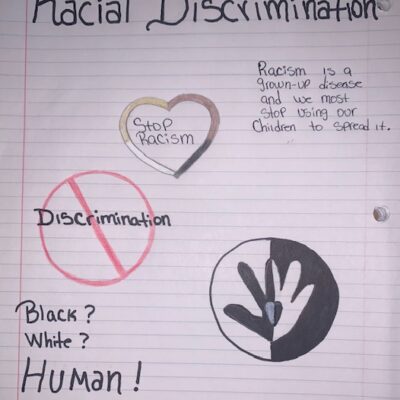 Racial Discrimination
Racism is a
grown-up disease
and we most
stop using our
Children to spread it.
Stop
Racism
Discrimination
Black?
White?
Human!